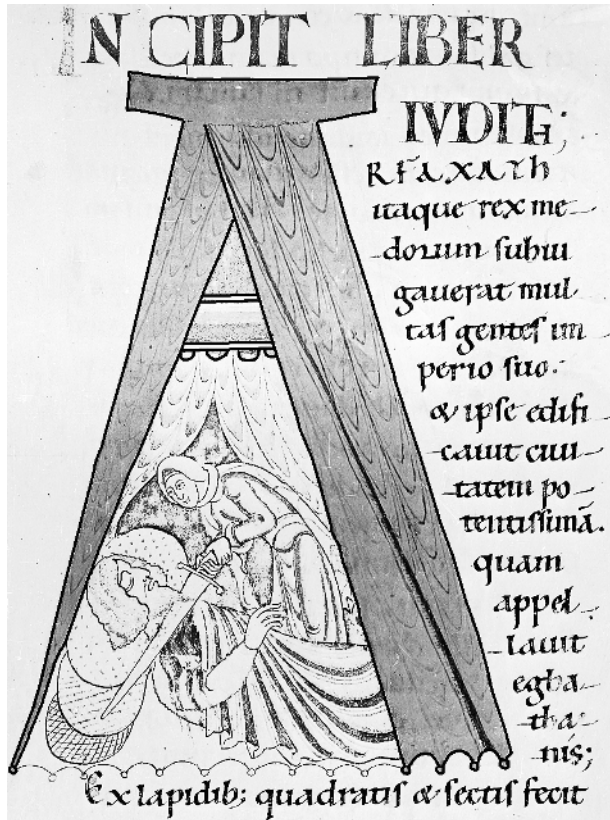 INCIPIT LIBER
IVDITH;
A
RFAXATh
itaque rex me-
dorum subiu
gauerat mul
tas gentes im
perio suo.
& ipse edifi
cauit ciui-
tatem po-
tentissimā.
quam
appel-
lauit
egba-
tha-
nis;
Ex lapidib; quadratis & sectis fecit